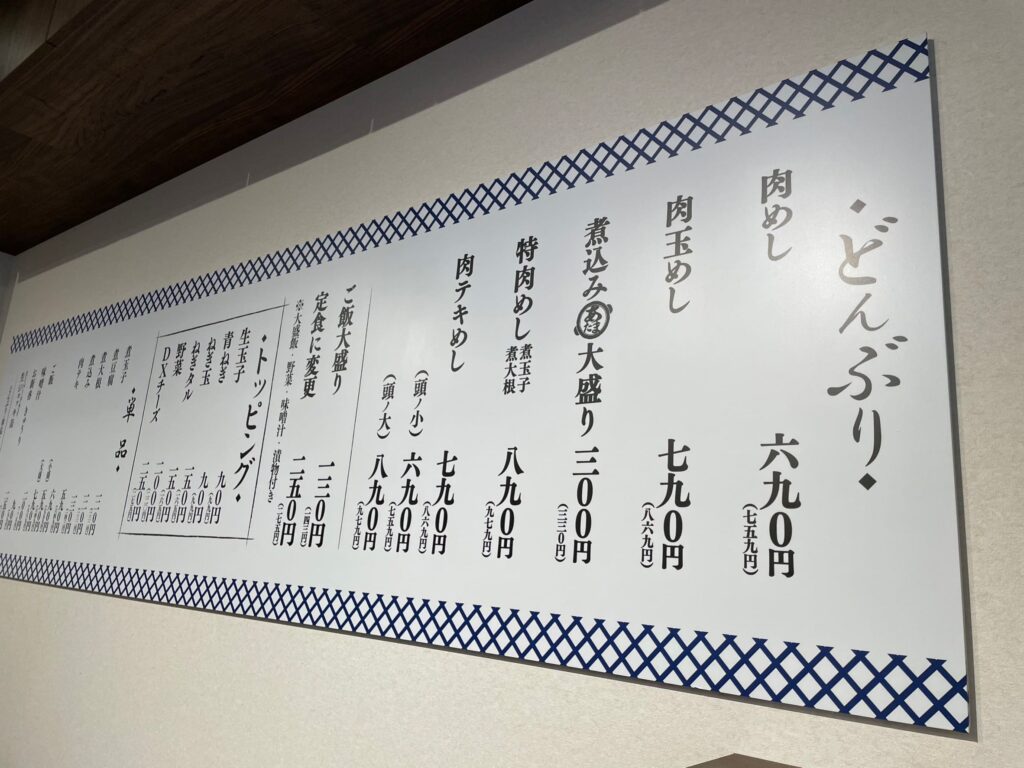 どんぶり
肉めし
六九〇円
(七五九円)
肉玉めし
七九〇円
(八六九円)
煮込みあたま大盛り
三〇〇円
(三三〇円)
特肉めし 煮玉子 煮大根
八九〇円
(九七九円)
肉テキめし
七九〇円
(八六九円)
(頭ノ小)
六九〇円
(七五九円)
(頭ノ大)
八九〇円
(九七九円)
ご飯大盛り
一三〇円
(一四三円)
定食に変更
二五〇円
(二七五円)
※大盛飯・野菜・味噌汁・漬物付き
トッピング
生玉子
九〇円
青ねぎ
九〇円
ねぎ玉
一五〇円
ねぎタル
一五〇円
野菜
一〇〇円
DXチーズ
二五〇円
単品
煮玉子
煮豆腐
煮大根
煮込み
肉テキ
ご飯
味噌汁
お新香